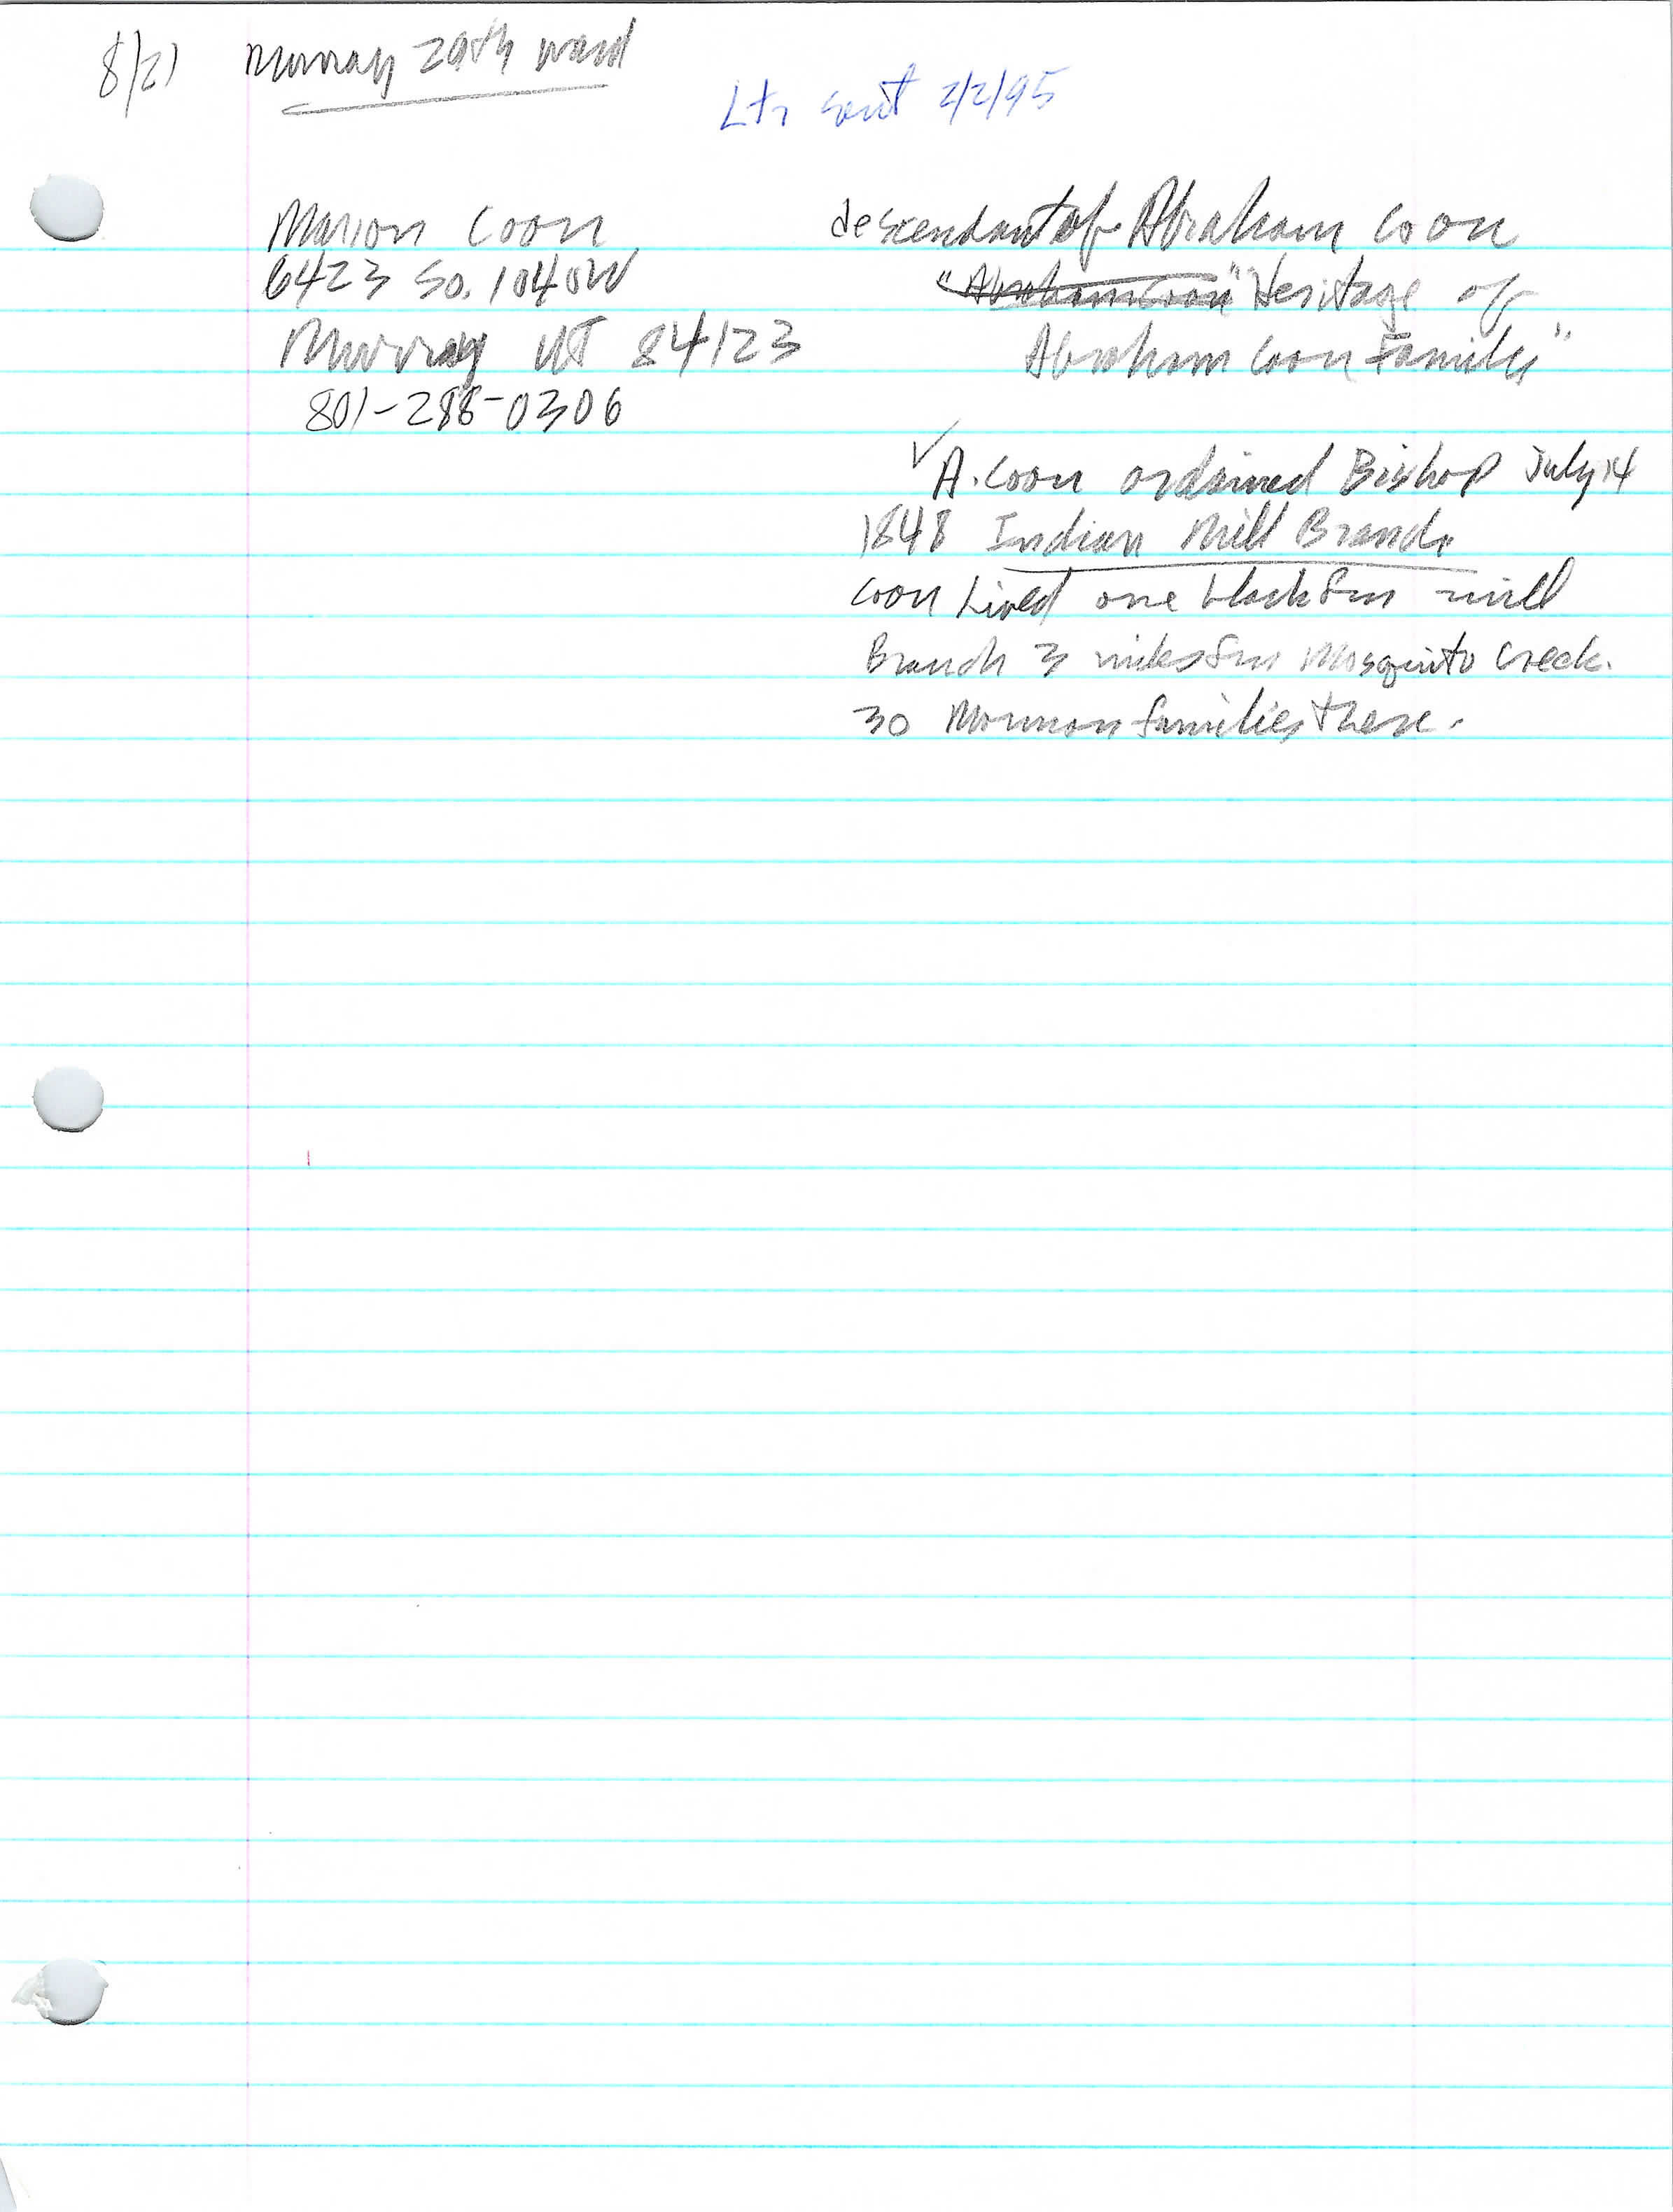 8/21 Murray 29th ward
Ltr sent 2/2/95
Marion Coon
6423 So. 1040W
Murray UT 84123
801-288-0306
descendant of Abraham Coon
"Abraham Coon" "Heritage of
Abraham Coon Families"
✓ A. Coon ordained Bishop July 14
1848 Indian Mill Branch
Coon Lived one block fm mill
Branch 3 miles fm Mosquito Creek.
30 Mormon families there.